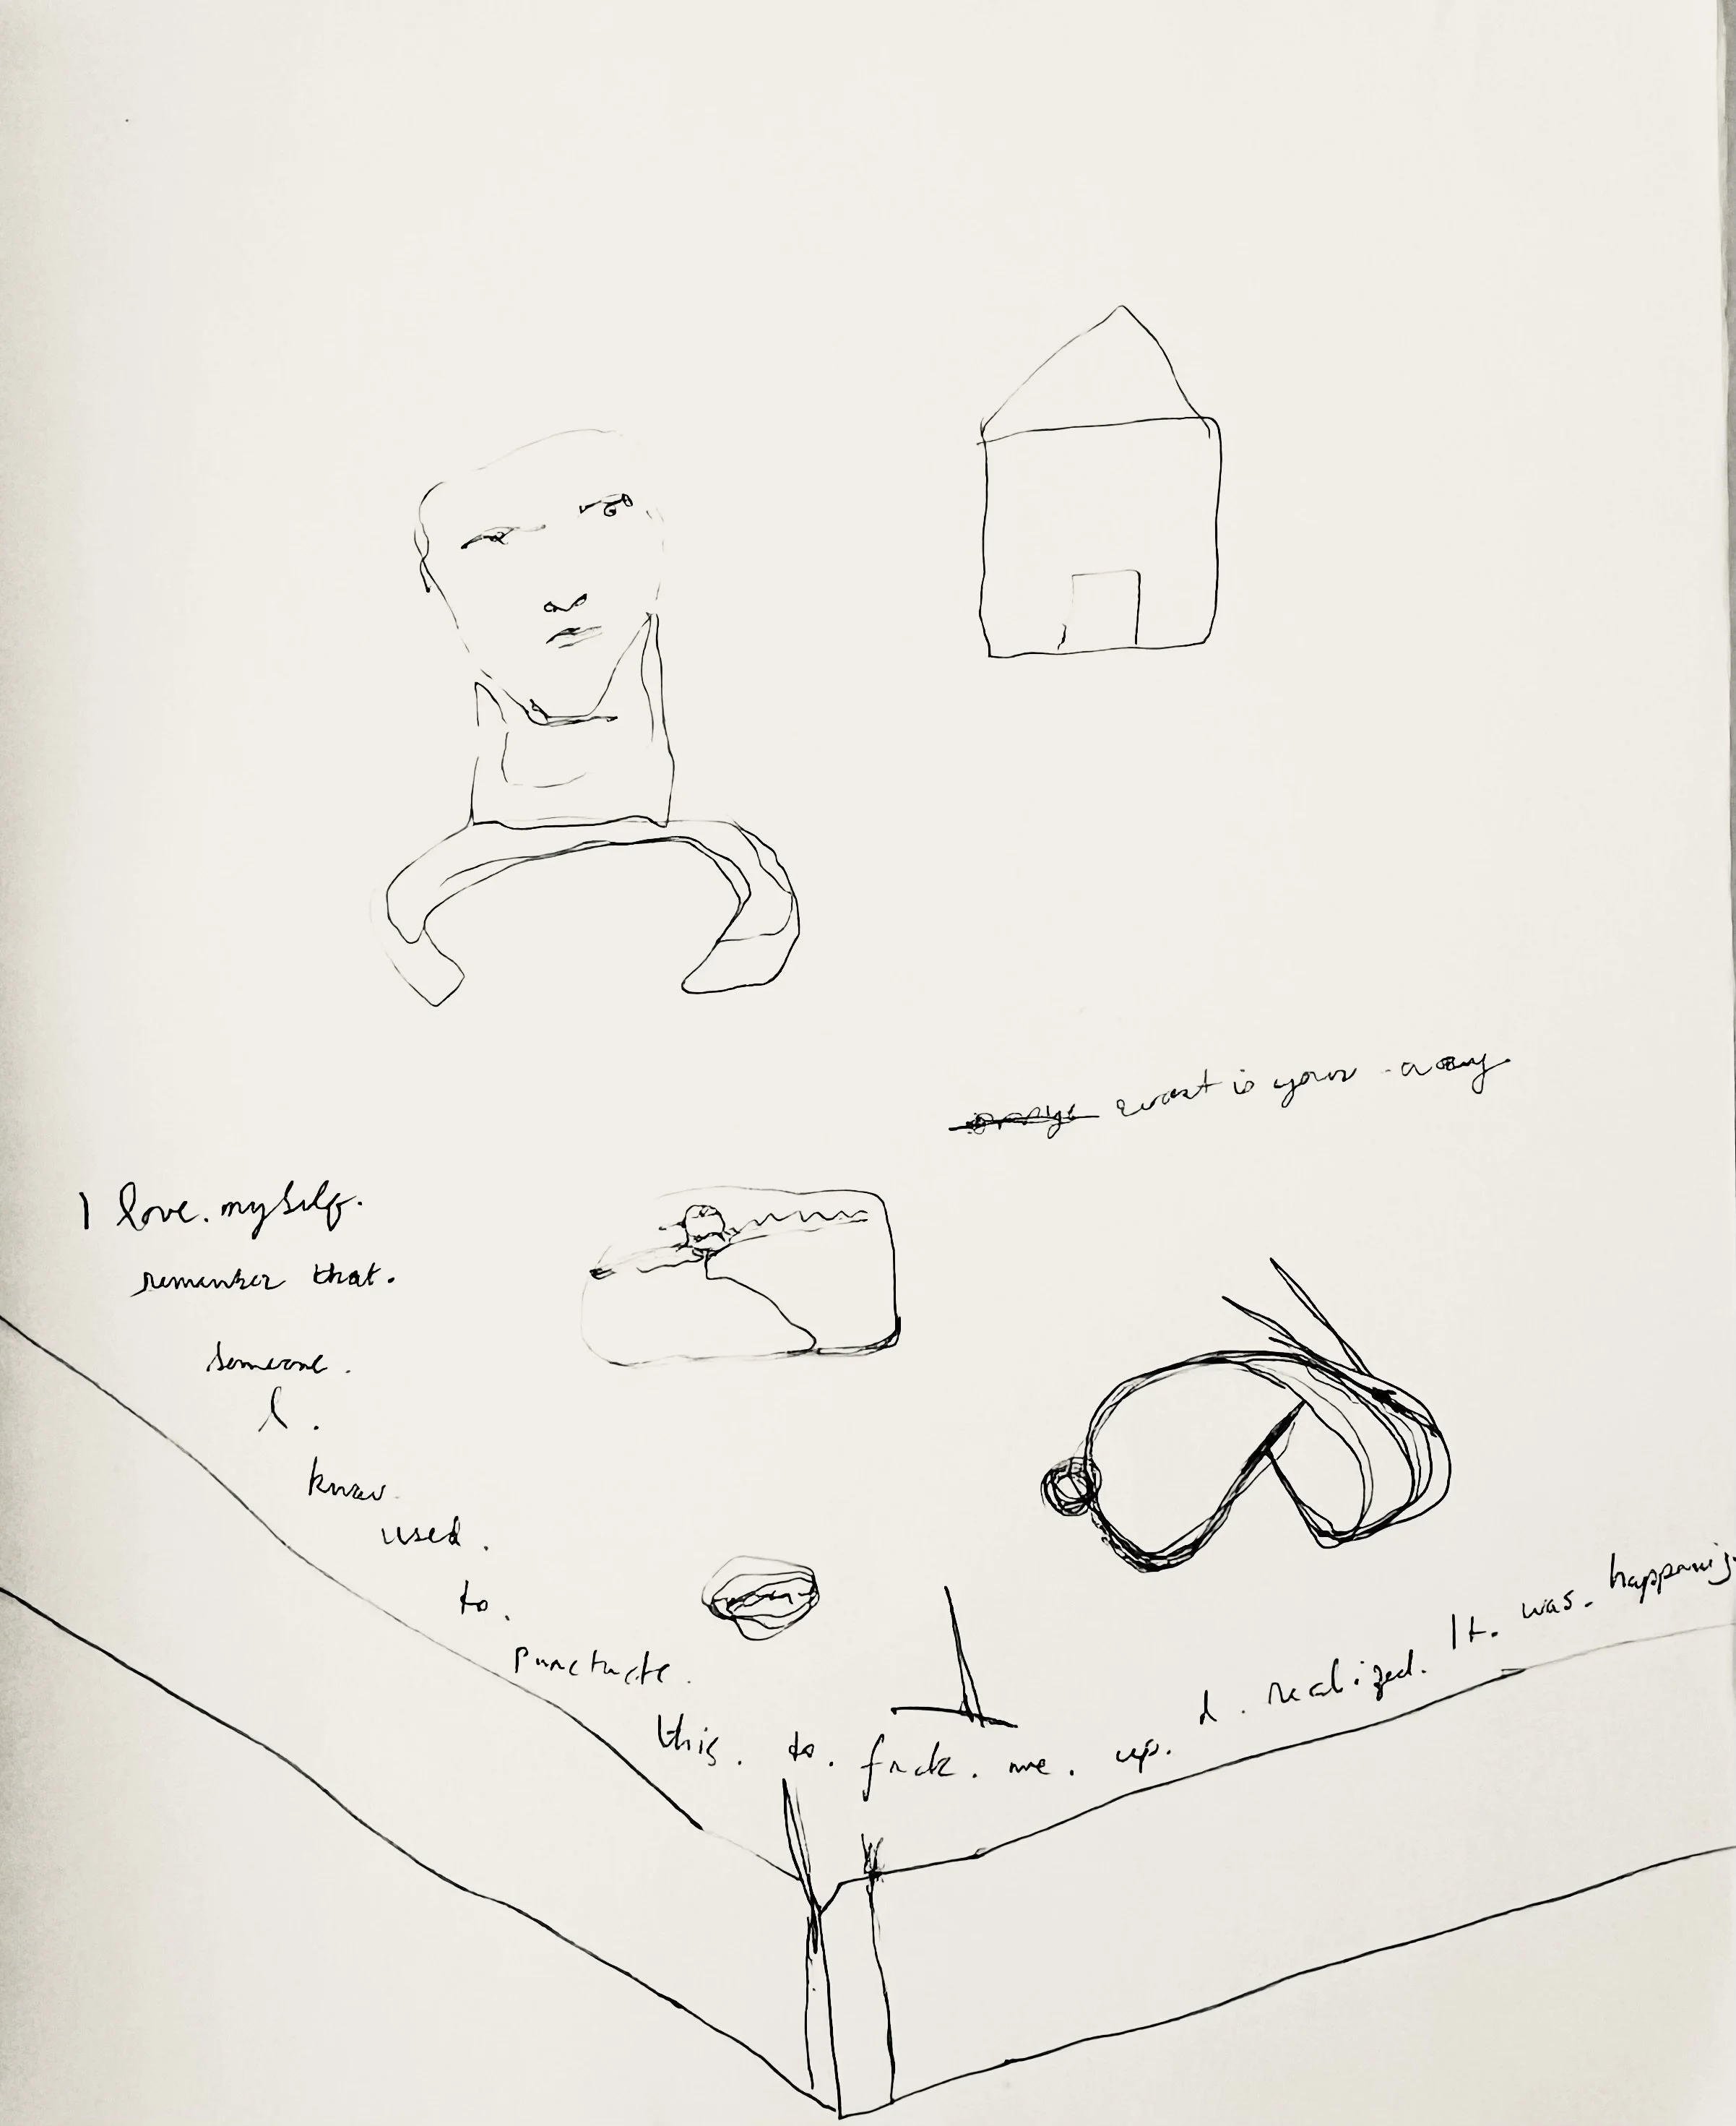 is your
I love. myself.
remember that.
someone.
I.
know
used.
to.
punctuate.
this. to. fuck. me. up. I. realized. It. was. happening